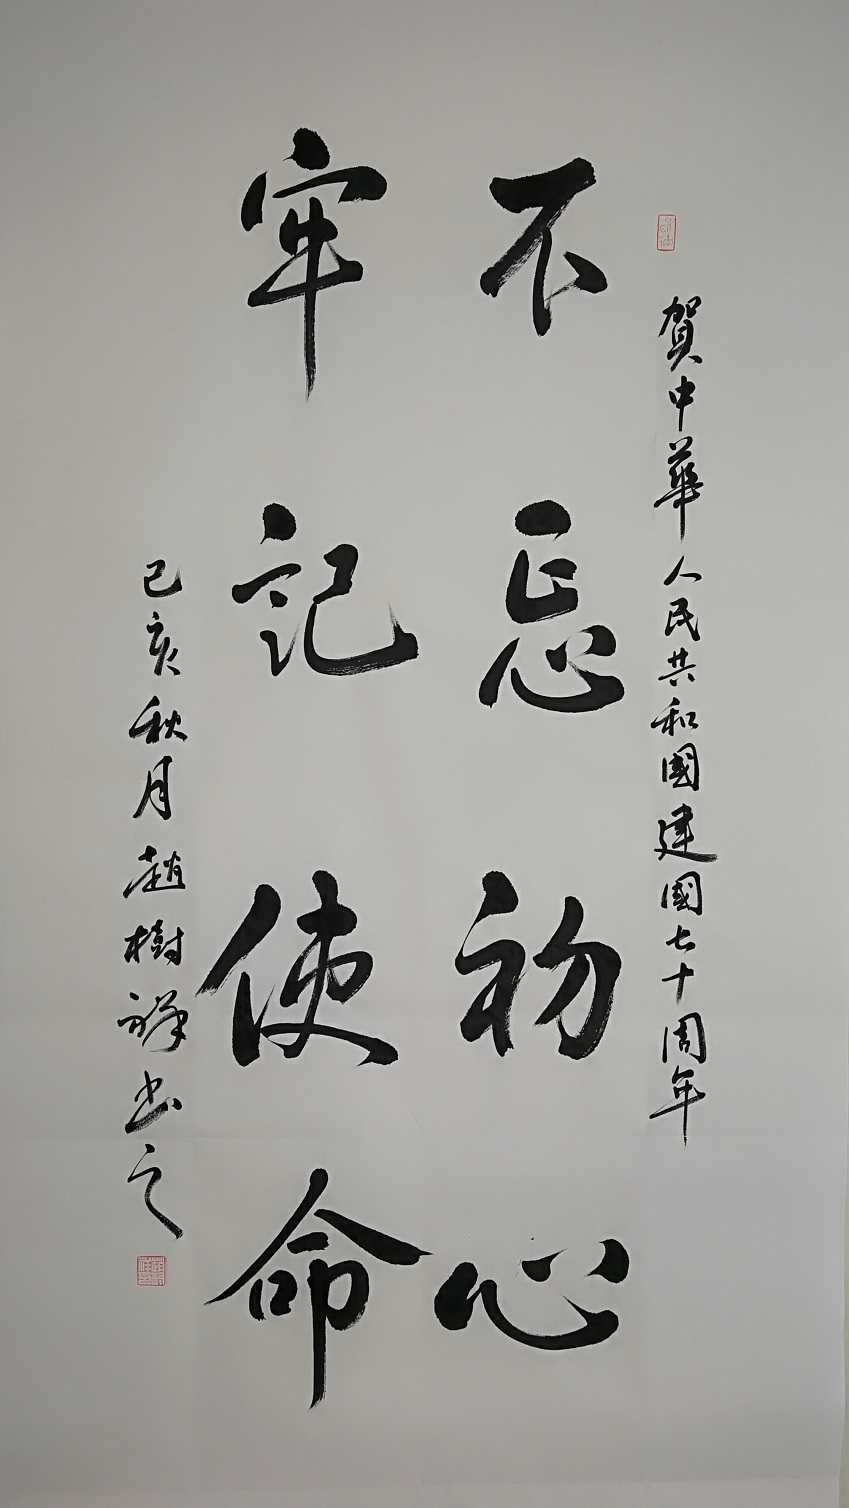 賀中華人民共和國建國七十周年
不忘初心
牢記使命
己亥秋月趙樹祥书之